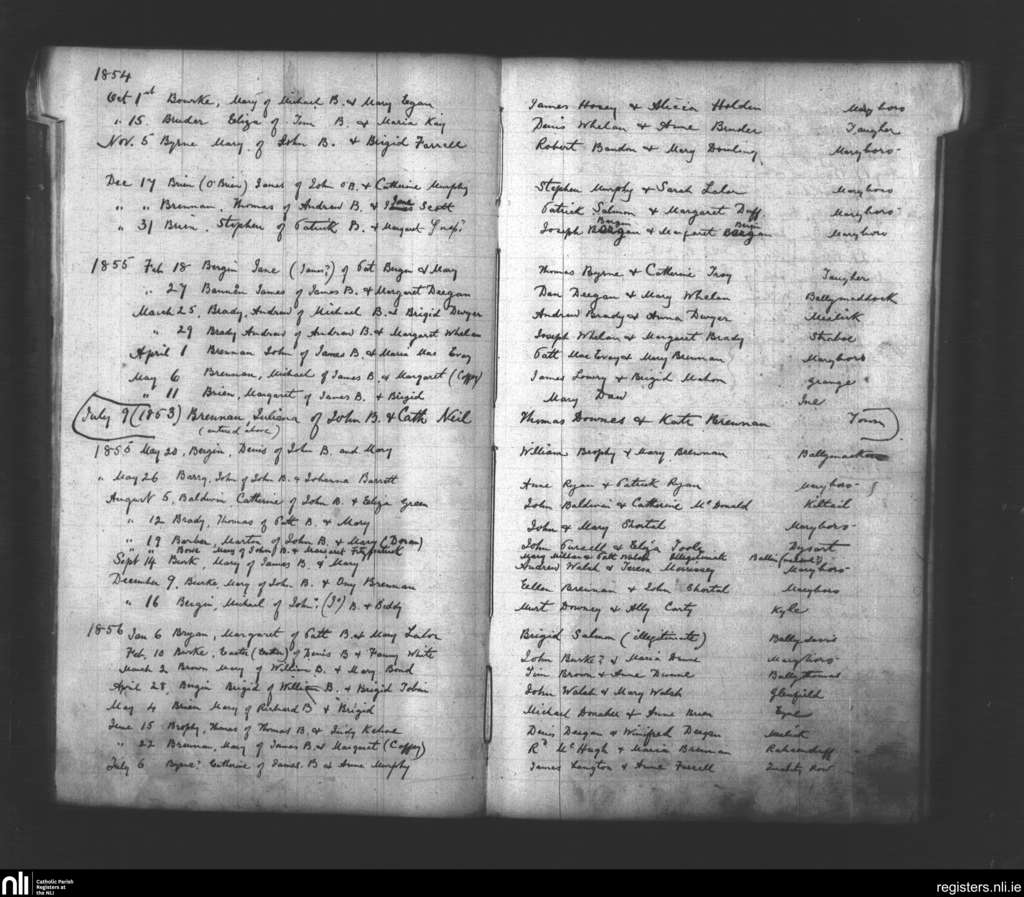 1854
Oct 1st Bourke, Mary of Michael B. & Mary Egan James Hovey & Alicia Holden Maryboro
" 15. Bruder Eliza of Tim B. & Maria Kay Denis Whelan & Anne Bruder Taugher
Nov. 5 Byrne Mary of John B. & Brigid Farrell Robert Bandon & Mary Dowling Maryboro
Dec 17 Brien (O'Brien) James of John O'B. & Catherine Murphy Stephen Murphy & Sarah Lalor Maryboro
" " Brennan, Thomas of Andrew B. & Jane Scott Patrick Salmon & Margaret Duff Maryboro
" 31 Brien, Stephen of Patrick B. & Margaret Joseph Bergin & Margaret Bergin Maryboro
1855 Feb 18 Bergin Jane (James?) of Pat Bergin & Mary Thomas Byrne & Catherine Troy Taugher
" 27 Bannon James of James B. & Margaret Deegan Dan Deegan & Mary Whelan Ballymaddock
March 25, Brady, Andrew of Michael B. & Brigid Dwyer Andrew Brady & Anna Dwyer Meelick
" 29 Brady Andrew of Andrew B. & Margaret Whelan Joseph Whelan & Margaret Brady Straboe
April 1 Brennan John of James B. & Maria Mac Evoy Patt Mac Evoy & Mary Brennan Maryboro
May 6 Brennan, Michael of James B. & Margaret (Coffey) James Lowry & Brigid Mahon Grange
" 11 Brien, Margaret of James B. & Brigid Mary Daw
July 9 (1853) Brennan Juliana of John B. & Cath Neil Thomas Downes & Kate Brennan Town
(entered above)
1855 May 20, Bergin, Denis of John B. and Mary William Brophy & Mary Brennan
" May 26 Barry, John of John B. & Johanna Barrett Anne Ryan & Patrick Ryan Maryboro
August 5, Baldwin Catherine of John B. & Eliza Green John Baldwin & Catherine McDonald Kiltail
" 12 Brady, Thomas of Patt B. & Mary John & Mary Shortal Maryboro
" 19 Barber, Martin of John B. & Mary (Doran) John Pursell & Eliza Tooly Dysart
" " Bowe Mary of John B. & Margaret Fitzpatrick Patt Walsh Illegitimate
Sept 14 Burk, Mary of James B. & Mary Andrew Walsh & Teresa Morrissey Maryboro
December 9, Burke Mary of John B. & Brennan Ellen Brennan & John Shortal Maryboro
" 16 Bergin, Michael of John? (Jo) B. & Biddy Murt Downey & Ally Carty Kyle
1856 Jan 6 Bryan, Margaret of Patt B. & Mary Lalor Brigid Salmon (illegitimate) Ballydavis
Feb. 10 Burke, Easter (Esther) of Denis B & Fanny White John Burke? & Maria Dunne Maryboro
March 2 Brown Mary of William B. & Mary Bond Tim Brown & Anne Dunne Ballythomas
April 28, Bergin Brigid of William B. & Brigid Tobin John Walsh & Mary Walsh Glenfield
May 4 Brien Mary of Richard B & Brigid Michael Donahee & Anne Brien Eyne
June 15 Brophy, Thomas of Thomas B. & Judy Kehoe Denis Deegan & Winifred Deegan Meelick
" 22 Brennan, Mary of James B. & Margaret (Coffey) Rd McHugh & Maria Brennan Rahanduff
July 6 Byrne? Catherine of James B & Anne Murphy James Langton & Anne Farrell Row
nli
Catholic Parish
Registers at
the NLI
registers.nli.ie